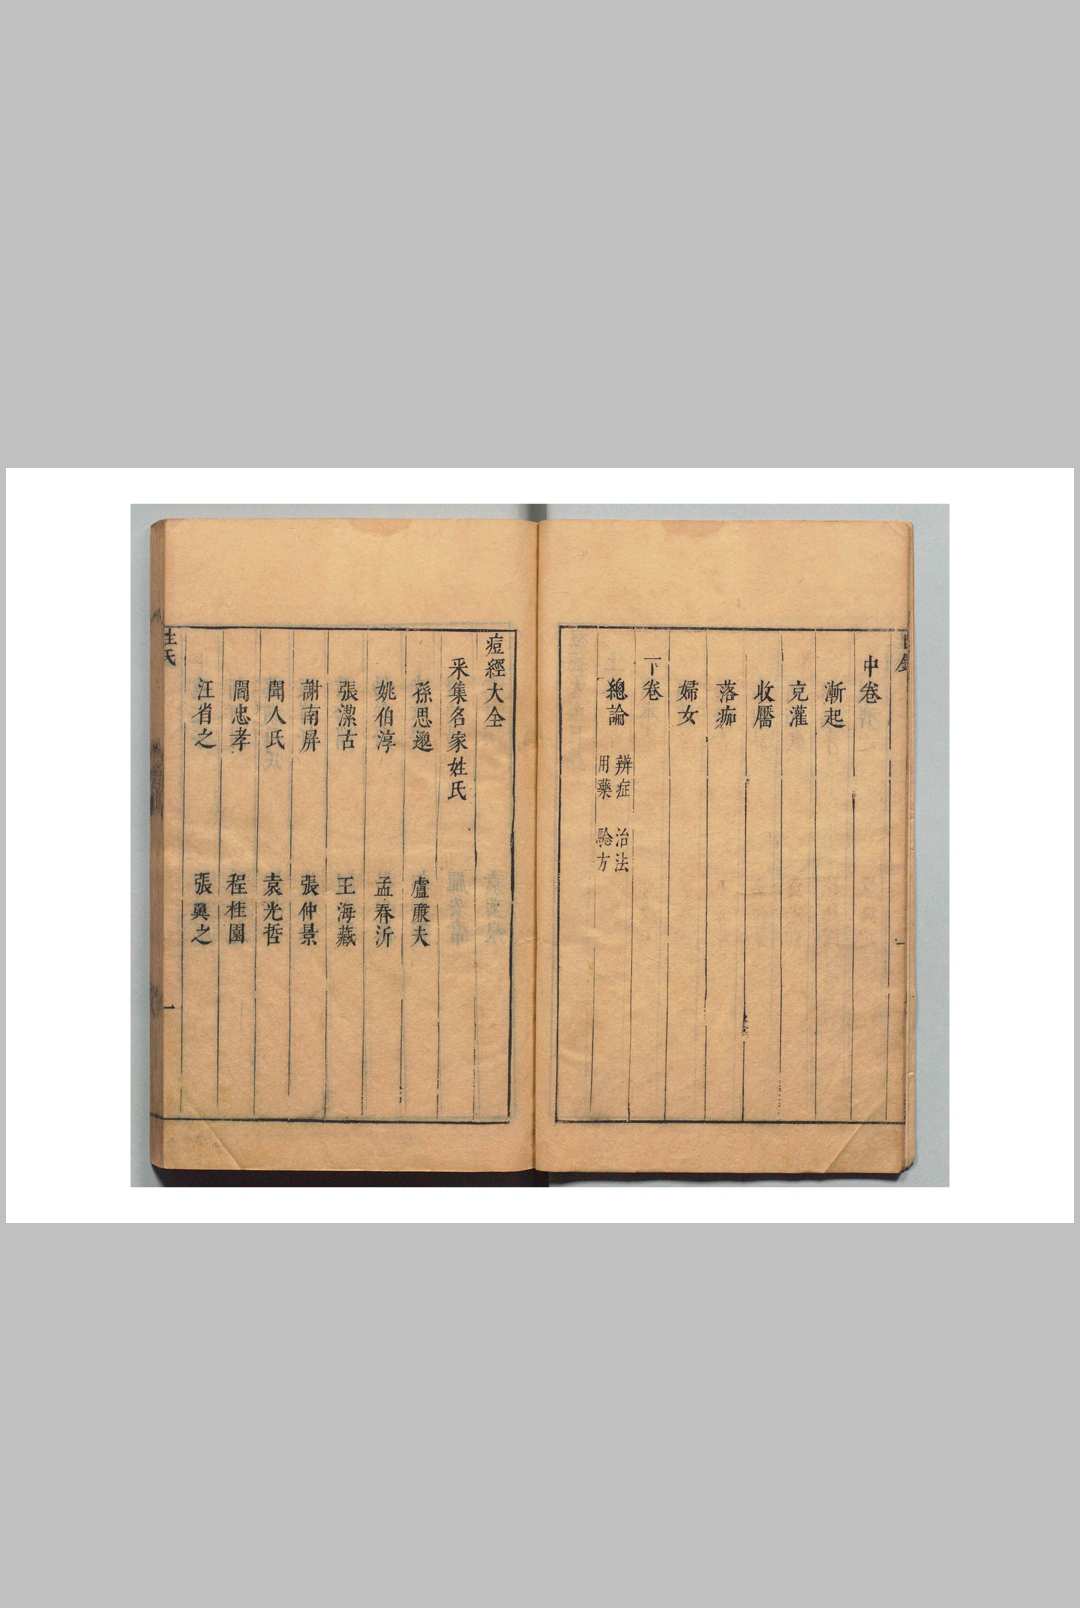 中卷
漸起
克灌
收靨
落痂
婦女
下卷
總論
辨症 治法
用藥 騐方
痘經大全
采集名家姓氏
孫思邈 盧康夫
姚伯淳 孟春沂
張潔古 王海藏
謝南屏 張仲景
聞人氏 袁光哲
閻忠孝 程桂園
汪省之 張巽之
姓氏
一